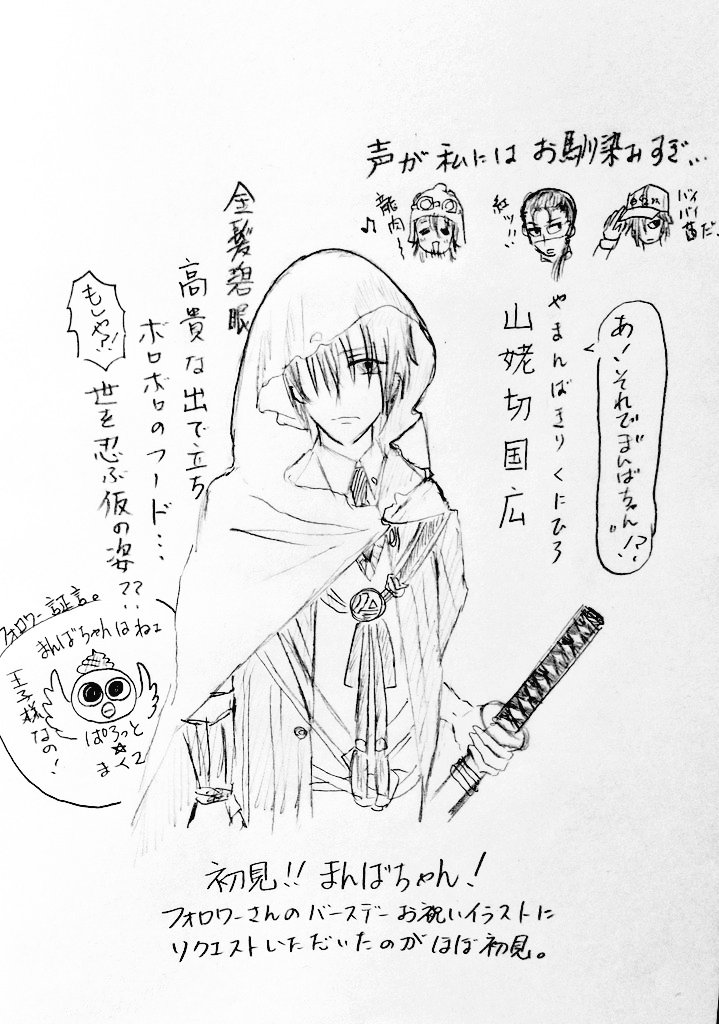 声が私には お馴染みすぎ…
龍肉〜
♪
紅ッ!!
バイバイ
菌だ、
金髪碧眼
高貴な出で立ち
ボロボロのフード…
世を忍ぶ仮の姿??
もしや?!
やまんばきり くにひろ
山姥切国広
あ、それでまんばちゃん!?
フォロワー証言。
まんばちゃんはねェ
王子様なの!
ぱろっと
☆
まくろ
初見!! まんばちゃん!
フォロワーさんのバースデーお祝いイラストに
リクエストいただいたのがほぼ初見。